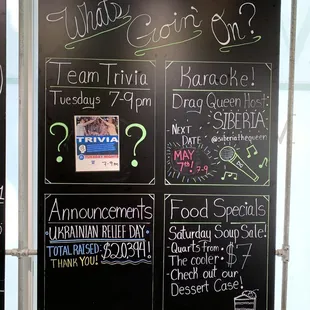 What's Goin' On?
Team Trivia
Tuesdays 7-9pm
?
?
TRIVIA
7-9 PM
Karaoke!
Drag Queen Host:
SIBERIA
@siberiathequeen
- NEXT
DATE -
MAY
7TH! 7-9
Announcements
*UKRAINIAN RELIEF DAY*
TOTAL RAISED: $20,394!
THANK YOU!
Food Specials
Saturday Soup Sale!
- Quarts from
The cooler • $7
- Check out our
Dessert Case!